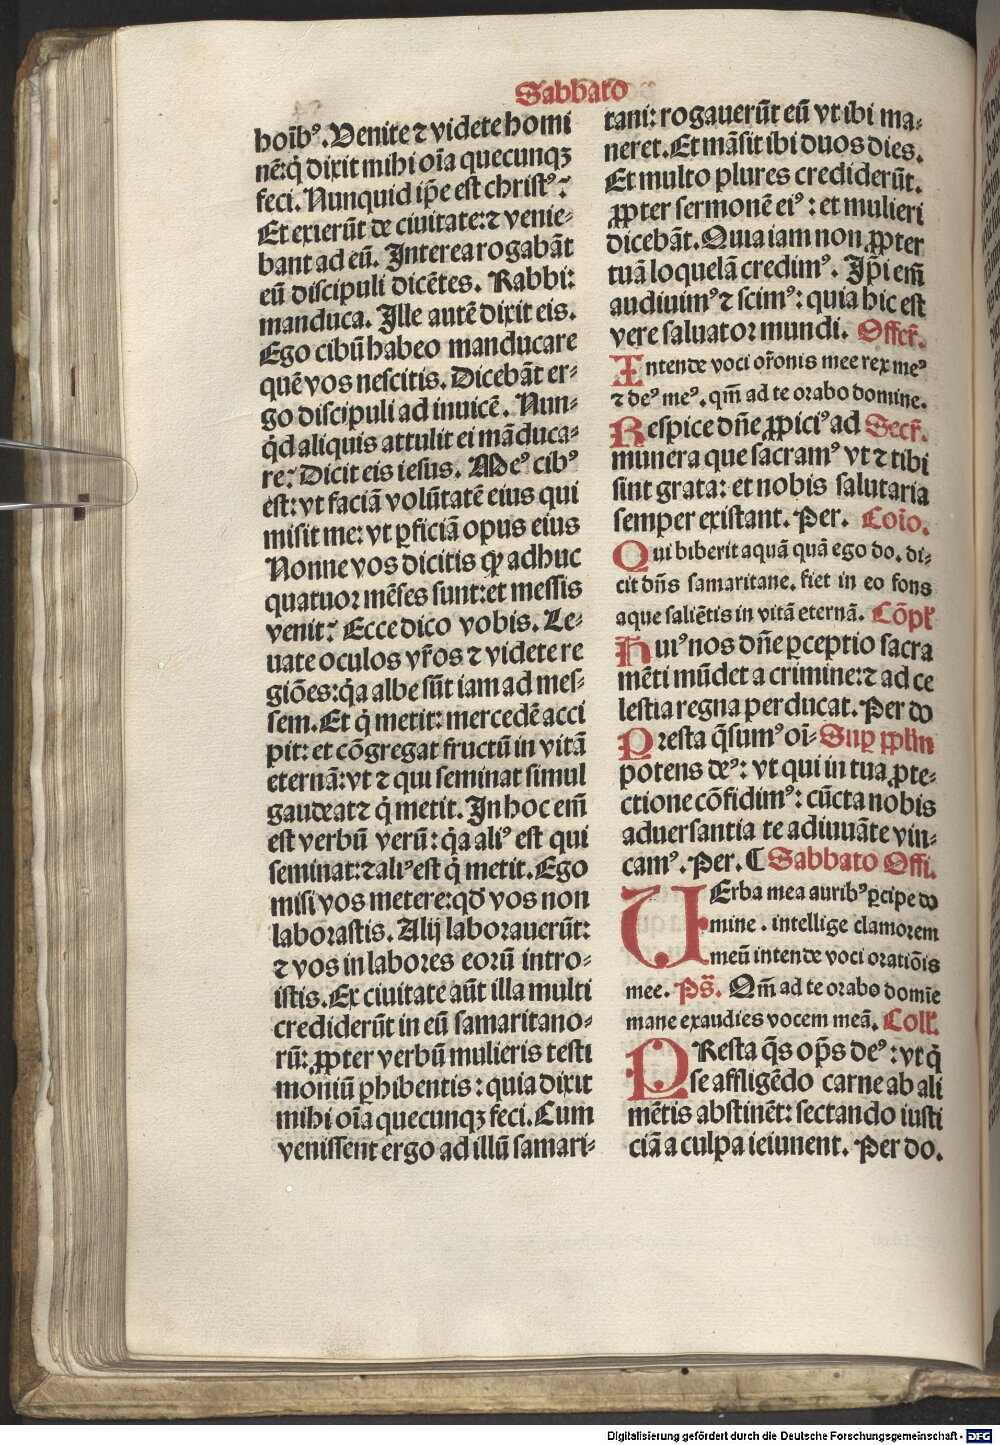 Sabbato
hoı̄bꝰ. Uenite ⁊ videte homi
nē: q̇ dixit mihi oı̄a quecunqꝫ
feci. Nunquid ip̄e est christꝰ?
Et exierūt de ciuitate: ⁊ venie-
bant ad eū. Interea rogabāt
eū discipuli dicētes. Rabbi:
manduca. Ille autē dixit eis.
Ego cibū habeo manducare
quē vos nescitis. Dicebāt er-
go discipuli ad inuicē. Nun-
q̇d aliquis attulit ei māduca-
re? Dicit eis iesus. Meꝰ cibꝰ
est: vt faciā volūtatē eius qui
misit me: vt ꝑficiā opus eius
Nonne vos dicitis ꝙ adhuc
quatuor mēses sunt: et messis
venit? Ecce dico vobis. Le-
uate oculos vr̄os ⁊ videte re
giōes: q̇a albe sūt iam ad mes-
sem. Et q̇ metit: mercedē acci
pit: et cōgregat fructū in vitā
eternā: vt ⁊ qui seminat simul
gaudeat ⁊ q̇ metit. In hoc em̄
est verbū verū: q̇a aliꝰ est qui
seminat: ⁊ aliꝰ est q̇ metit. Ego
misi vos metere: qd̄ vos non
laborastis. Alij laborauerūt:
⁊ vos in labores eorū intro-
istis. Ex ciuitate aūt illa multi
crediderūt in eū samaritano-
rū: ꝓpter verbū mulieris testi
moniū ꝑhibentis: quia dixit
mihi oı̄a quecunqꝫ feci. Cum
venissent ergo ad illū samari-
tani: rogauerūt eū vt ibi ma-
neret. Et māsit ibi duos dies.
Et multo plures crediderūt.
ꝓpter sermonē eiꝰ: et mulieri
dicebāt. Quia iam non ꝓpter
tuā loquelā credimꝰ. Ip̄i em̄
audiuimꝰ ⁊ scimꝰ: quia hic est
vere saluator mundi. Offer̄.
Intende voci or̄onis mee rex meꝰ
⁊ deꝰ meꝰ. qm̄ ad te orabo domine.
Respice dn̄e ꝓpiciꝰ ad Secr̄.
munera que sacramꝰ vt ⁊ tibi
sint grata: et nobis salutaria
semper existant. Per. Coı̄o.
Qui biberit aquā quā ego do. di-
cit dn̄s samaritane. fiet in eo fons
aque saliētis in vitā eternā. Cōpl̄
Huiꝰ nos dn̄e ꝑceptio sacra
mēti mūdet a crimine: ⁊ ad ce
lestia regna perducat. Per do
Presta q̄sumꝰ oı̄- Suꝑ ꝓplm̄
potens deꝰ: vt qui in tua ꝓte-
ctione cōfidimꝰ: cūcta nobis
aduersantia te adiuuāte vin-
camꝰ. Per. ¶ Sabbato Offi.
UErba mea auribꝰ ꝑcipe do
mine. intellige clamorem
meū intende voci oratiōis
mee. Ps̄. Qm̄ ad te orabo domı̄e
mane exaudies vocem meā. Coll̄.
PResta q̄s op̄s deꝰ: vt q̇
se affligēdo carne ab ali
mētis abstinēt: sectando iusti
ciā a culpa ieiunent. Per do.
Digitalisierung gefördert durch die Deutsche Forschungsgemeinschaft - DFG